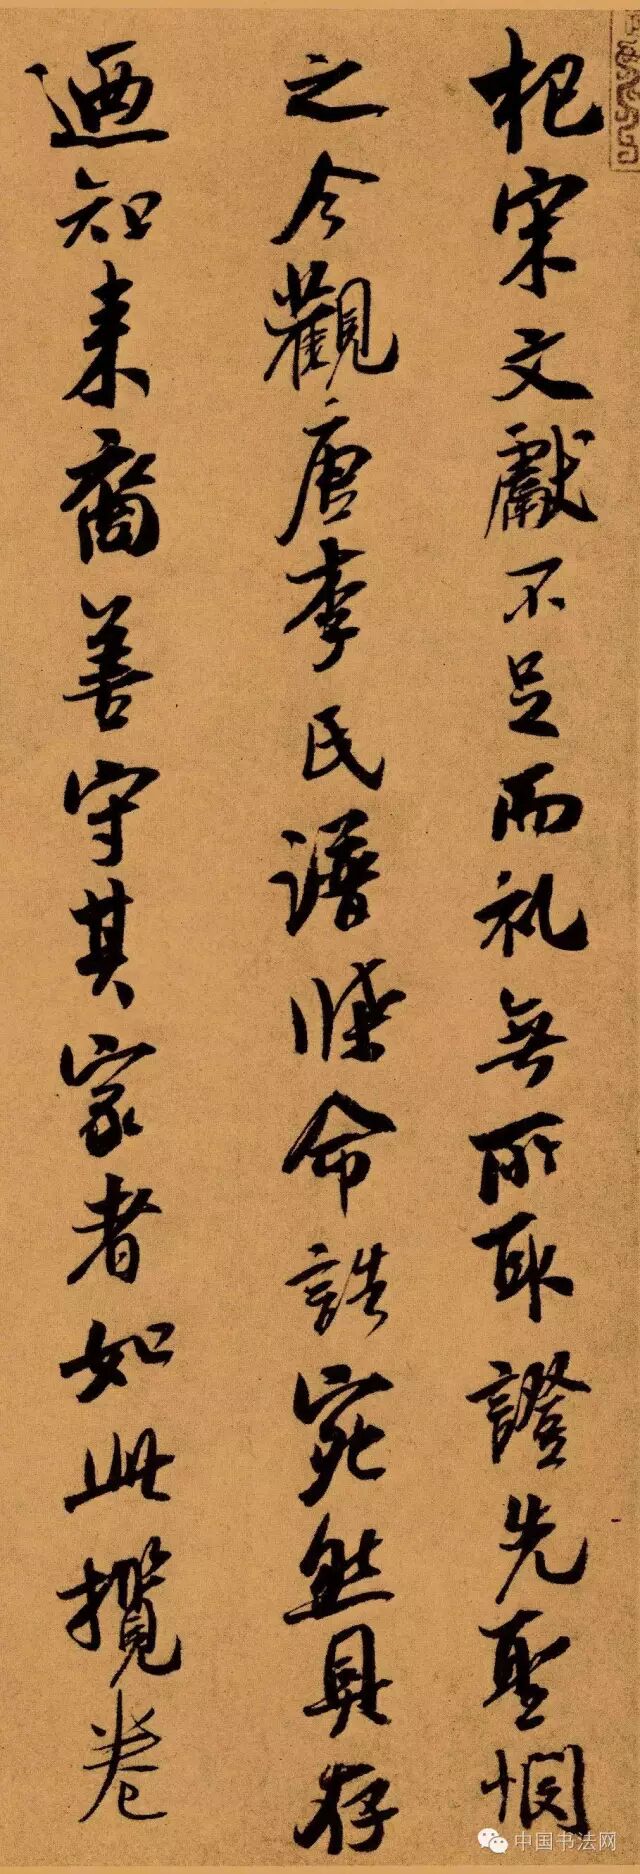 杞宋文獻不足而礼無所取證先聖憫
之今觀唐李氏譜牒命誥宛然具存
迺知来裔善守其家者如此攬卷
中国书法网